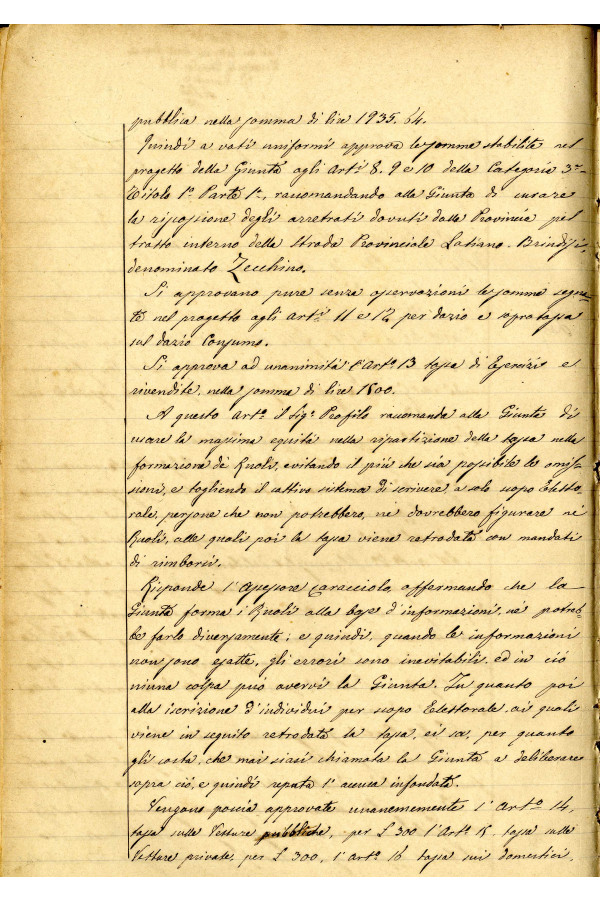 pubblica nella somma di lire 1935.64.
Quindi a voti uniformi approva le somme stabilite nel
progetto della Giunta agli Arti. 8, 9 e 10 della Categoria 3ª
Titolo 1º Parte 1ª, raccomandando alla Giunta di curare
la riscossione degli arretrati dovuti dalla Provincia pel
tratto interno della Strada Provinciale Latiano-Brindisi,
denominato Zecchino.
Si approvano pure senza osservazioni le somme segna=
te nel progetto agli Arti. 11 e 12 per dazio e soprotassa
sul dazio Consumo.
Si approva ad unanimità l'Arto. 13 tassa di Esercizi e
rivendite, nella somma di lire 1500.
A questo Arto. il Sigr. Profilo raccomanda alla Giunta di
usare la massima equità nella ripartizione della tassa nella
formazione dè Ruoli, evitando il più che sia possibile le omis=
sioni, e togliendo il cattivo sistema di scrivere, a solo scopo Eletto=
rale, persone che non potrebbero, nè dovrebbero figurare nè
Ruoli, alle quali poi la tassa viene retrodata con mandati
di rimborsi.
Risponde l'Assessore Caracciolo, affermando che la
Giunta forma i Ruoli alla base d'informazioni, nè potreb=
be farlo diversamente; e quindi, quando le informazioni
non sono esatte, gli errori sono inevitabili, ed in ciò
niuna colpa può avervi la Giunta. In quanto poi
alla iscrizione d'individui per scopo Elettorale, ai quali
viene in seguito retrodata la tassa, ei sa, per quanto
gli costa, che mai siasi chiamata la Giunta a deliberare
sopra ciò, e quindi reputa l'accusa infondata.
Vengono poscia approvate unanemente l'Arto. 14,
tassa sulle Vetture pubbliche, per £ 300 l'Arto. 15 tassa sulle
Vetture private, per £ 300, l'Arto. 16 tassa sui domestici,